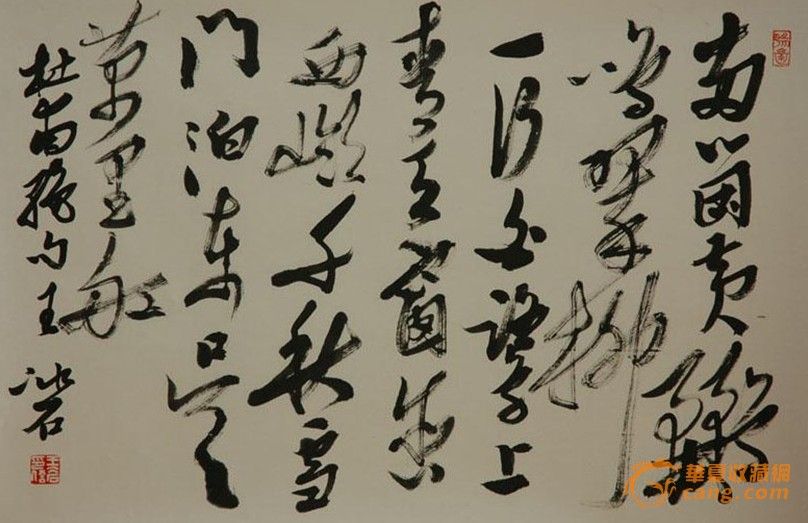 两箇黄鸝
鳴翠柳
一行白鷺上
青天窗含
西嶺千秋雪
门泊东吴
萬里船
杜甫绝句王
華夏收藏網
cang.com